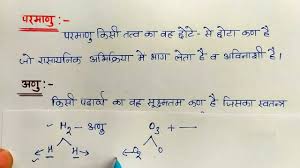 परमाणु :-
परमाणु किसी तत्व का वह छोटे-से छोटा कण है
जो रासायनिक अभिक्रिया में भाग लेता है व अविनाशी है।
अणु :-
किसी पदार्थ का वह सूक्ष्मतम कण है जिसका स्वतन्त्र
H₂ – अणु O₃ +
H H O